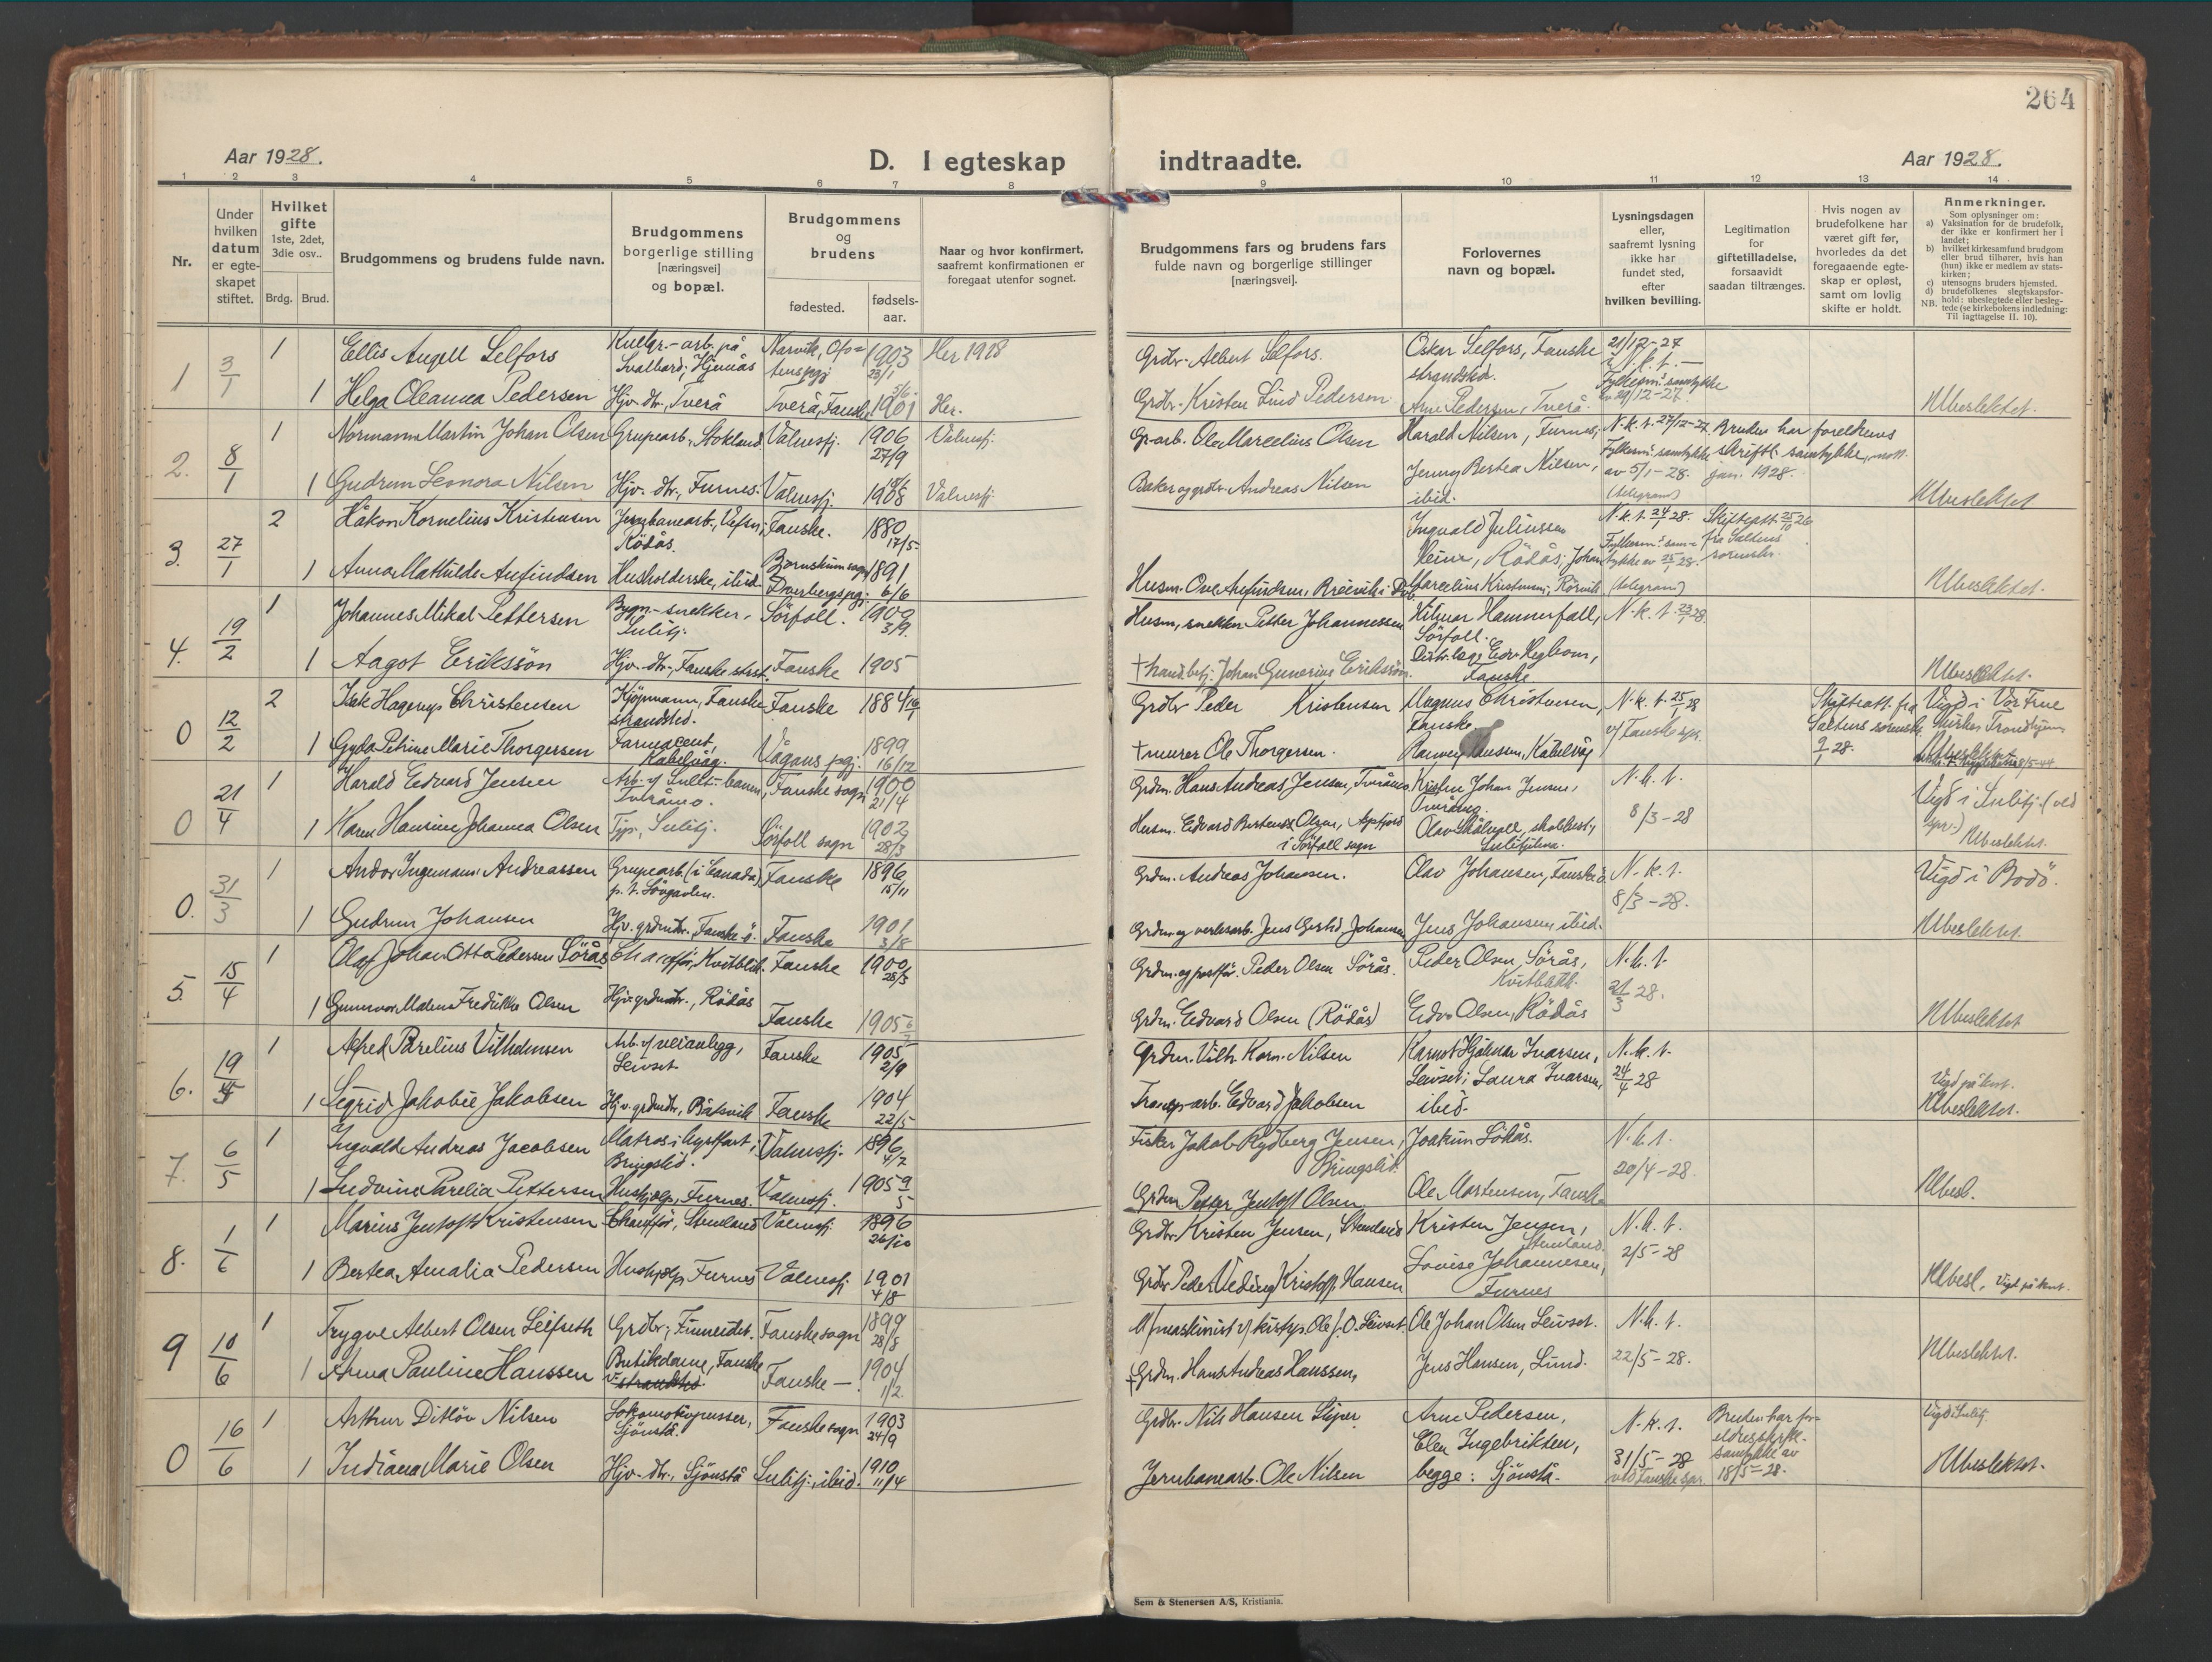 264
Aar 1928.
D. I egteskap indtraadte.
Aar 1928.
1 2 3 4 5 6 7 8 9 10 11 12 13 14
Nr.
Under hvilken datum er egteskapet stiftet.
Hvilket gifte
1ste, 2det, 3die osv..
Brdg. Brud.
Brudgommens og brudens fulde navn.
Brudgommens borgerlige stilling [næringsvei] og bopæl.
Brudgommens og brudens
fødested.
fødsels-aar.
Naar og hvor konfirmert, saafremt konfirmationen er foregaat utenfor sognet.
Brudgommens fars og brudens fars fulde navn og borgerlige stillinger [næringsvei].
Forlovernes navn og bopæl.
Lysningsdagen eller, saafremt lysning ikke har fundet sted, efter hvilken bevilling.
Legitimation for giftetilladelse, forsaavidt saadan tiltrænges.
Hvis nogen av brudefolkene har været gift før, hvorledes da det foregaaende egteskap er opløst, samt om lovlig skifte er holdt.
Anmerkninger.
Som oplysninger om:
a) Vaksination for de brudefolk, der ikke er konfirmert her i landet;
b) hvilket kirkesamfund brudgom eller brud tilhører, hvis han (hun) ikke er medlem av statskirken;
c) utensogns bruders hjemsted.
d) brudefolkenes slegtskapsforhold: ubeslegtede eller beslegtede (se kirkebokens indledning:
NB. Til iagttagelse II. 10).
1 3/1 1 Ellis Angell Selfors Kullgr.-arb. på Svalbard; Narvik, Ofotens pgj 1903 23/1 Her 1918 Grdbr. Albert Selfors. Oskar Selfors, Fauske strandsted. 21/12-27 N.k.t.
1 Helga Oleanna Pedersen Hjv. dtr., Tverå Tverå, Fauske 1901 5/6 Her. Grdbr. Kristen Lind Pedersen Arne Pedersen, Tverå. Fylkesm.s samtykke 12-27. Ubeslektet.
2. 8/1 1 Normann Martin Johan Olsen Grupearb. Stokland Valnesfj. 1906 27/9 Valnesfj. Gr.arb. Ole Marcelius Olsen Harald Nilsen, Furnes; N.k.t. 27/12-27 Bruden har foreldrenes skriftl. samtykke, jan. 1928.
1 Gudrun Leonora Nilsen Hjv. dtr., Furnes. Valnesfj. 1908 Valnesfj. Baker og grdbr. Andreas Nilsen Jenny Bertea Nilsen, ibid. Fylkesm.s samtykke av 5/1-28. (telegram) Ubeslektet
3. 27/1 2 Håkon Kornelius Kristensen Jernbanearb., Vefsn; Rödås. Fauske. 1880 17/5 Ingvald Juliussen Heine, Rödås; Johan Marcelius Kristensen, Rörvik N.k.t. 24/1 28. Skifteatt. 25/10 26 fra Saltens sorenskr.
1 Anna Mathilde Arfindsen Husholderske, ibid. Bjørnskinn sogn Dverbergs pgj. 1891 6/6 Husm. Ove Arfindsen, Fylkesm.s samtykke av 25/1 28. (telegram) Ubeslektet.
4. 19/2 1 Johannes Mikal Pettersen Bygn.-snekker, Sulitj. Sörfoll. 1900 3/9. Husm., snekker Petter Johannessen Hilmar Hammerfall, Sörfoll. N.k.t. 23/1 28.
1 Aagot Eriksson Hjv. dtr., Fauske strst. Fauske 1905 † handl.betj. Johan Gunerius Eriksson. Fauske Ubeslektet.
0 12/2 2 Isak Hagerup Christensen Kjöpmann, Fauske strandsted. Fauske 1884 16/1 Grdbr Peder Kristensen Magnus Christensen, Fauske N.k.t. 25/1 28 v/ Fauske spr. Skifteatt. fra Saltens sorenskr. 9/1 28. Vigd i Vår Frue Kirke, Trondhjem
1 Gyda Petrine Marie Thorgersen Farmaceut, Kabelvåg. Vågans pgj. 1899 16/12 † murer Ole Thorgersen. Hansen, Kabelvåg Ubeslektet
0 21/4 1 Harald Edvard Jensen Arb. v/ Sulit-banen, Tveråmo. Fauske sogn 1900 21/4 Grdm. Hans Andreas Jensen, Tveråmo Kristen Johan Jensen, N.k.t. Vigd i Sulitj. (ved spr.)
1 Karen Hansine Johanna Olsen Tjp., Sulitj. Sörfoll sogn 1902 28/3 Husm. Edvard Olsen, i Sörfoll sogn Olav 8/3-28 Ubeslektet.
0. 31/3 1 Andor Ingemann Andreassen Grupearb. (i Canada) p.t. Lövgavlen. Fauske 1896 15/11 Grdm. Andreas Johansen. Olav Johansen, Fauske ö. N.k.t. 8/3-28. Vigd i Bodö.
1 Gudrun Johansen Hjv. grdm.dtr. Fauske ö. Fauske 1901 3/8 Grdm. og verksarb. Jens Johansen Jens Johansen ibid. Ubeslektet.
5. 15/4 1 Olaf Johan Otto Pedersen Sörås Chauffør, Kvitblik. Fauske 1900 28/3 Grdm. og postför. Peder Olsen Sörås. Peder Olsen, Sörås, Kvitblikk. N.k.t. 21/3 28.
1 Gunnvor Malene Fredrikke Olsen Hjv. grdm.dtr., Rödås Fauske 1905 Grdm. Edvard Olsen (Rödås) Edv. Olsen, Rödås Ubeslektet
6. 19/5 1 Alfred Parelius Vilhelmsen Arb. v/ veianlegg, Leivset Fauske 1905 2/9 Grdm. Vilh. Korn. Nilsen Karnot Hjalmar Ivarsen, Leivset; Laura Ivarsen, ibid. N.k.t. 24/4 28 Vigd på kont.
1 Sigrid Jakobie Jakobsen Hjv. grdm.dtr., Båtsvik Fauske 1904 22/5 Transp.arb. Edvard Jakobsen Ubeslektet.
7. 6/5 1 Ingvald Andreas Jacobsen Matros i kystfart, Bringsli. Valnesfj. 1896 4/7 Fisker Jakob Rydberg Jensen, Bringsli. Joakim Lökås. N.k.t. 20/4-28.
1 Ludvine Parelia Pettersen Hushjelp, Furnes. Valnesfj. 1905 9/5 Grdm. Petter Jentoft Olsen Ole Mortensen, Fauske Ubesl.
8. 1/6 1 Marius Jentoft Kristensen Chauffør, Stemland Valnesfj. 1896 26/10 Grdbr. Kristen Jensen, Stemland Kristen Jensen, Stemland. N.k.t. 2/5-28
1 Bertea Amalia Pedersen Hushjelp Furnes Valnesfj. 1901 4/8 Grdbr Peder Veding Kristoff. Hansen Lovise Johannesen, Furnes Ubesl. Vigd på kont.
9 10/6 1 Trygve Albert Olsen Leifseth Grdbr., Finneidet. Fauske sogn 1899 28/8 M/maskinist Ole J. O. Leivset. Ole Johan Olsen Leivset. N.k.t.
1 Anna Pauline Hanssen Butikdame, Fauske Fauske —. 1904 1/2 † Grdm. Hans Andreas Hanssen, Jens Hansen, Lund. 22/5-28. Ubeslektet.
0 16/6 1 Arthur Ditlöv Nilsen Lokomotivpusser, Sjönstå. Fauske sogn 1903 24/9 Grdbr. Nils Hansen Arne Pedersen, Elen Ingebriktsen, begge: Sjönstå. N.k.t. Bruden har foreldres skr. samtykke av 18/5-28. Vigd i Sulitj.
1 Indiana Marie Olsen Hjv. dtr., Sjönstå Sulitj., ibid. 1910 11/4 Jernbanearb. Ole Nilsen 31/5-28 ved Fauske spr. Ubeslektet.
Sem & Stenersen A/S, Kristiania.